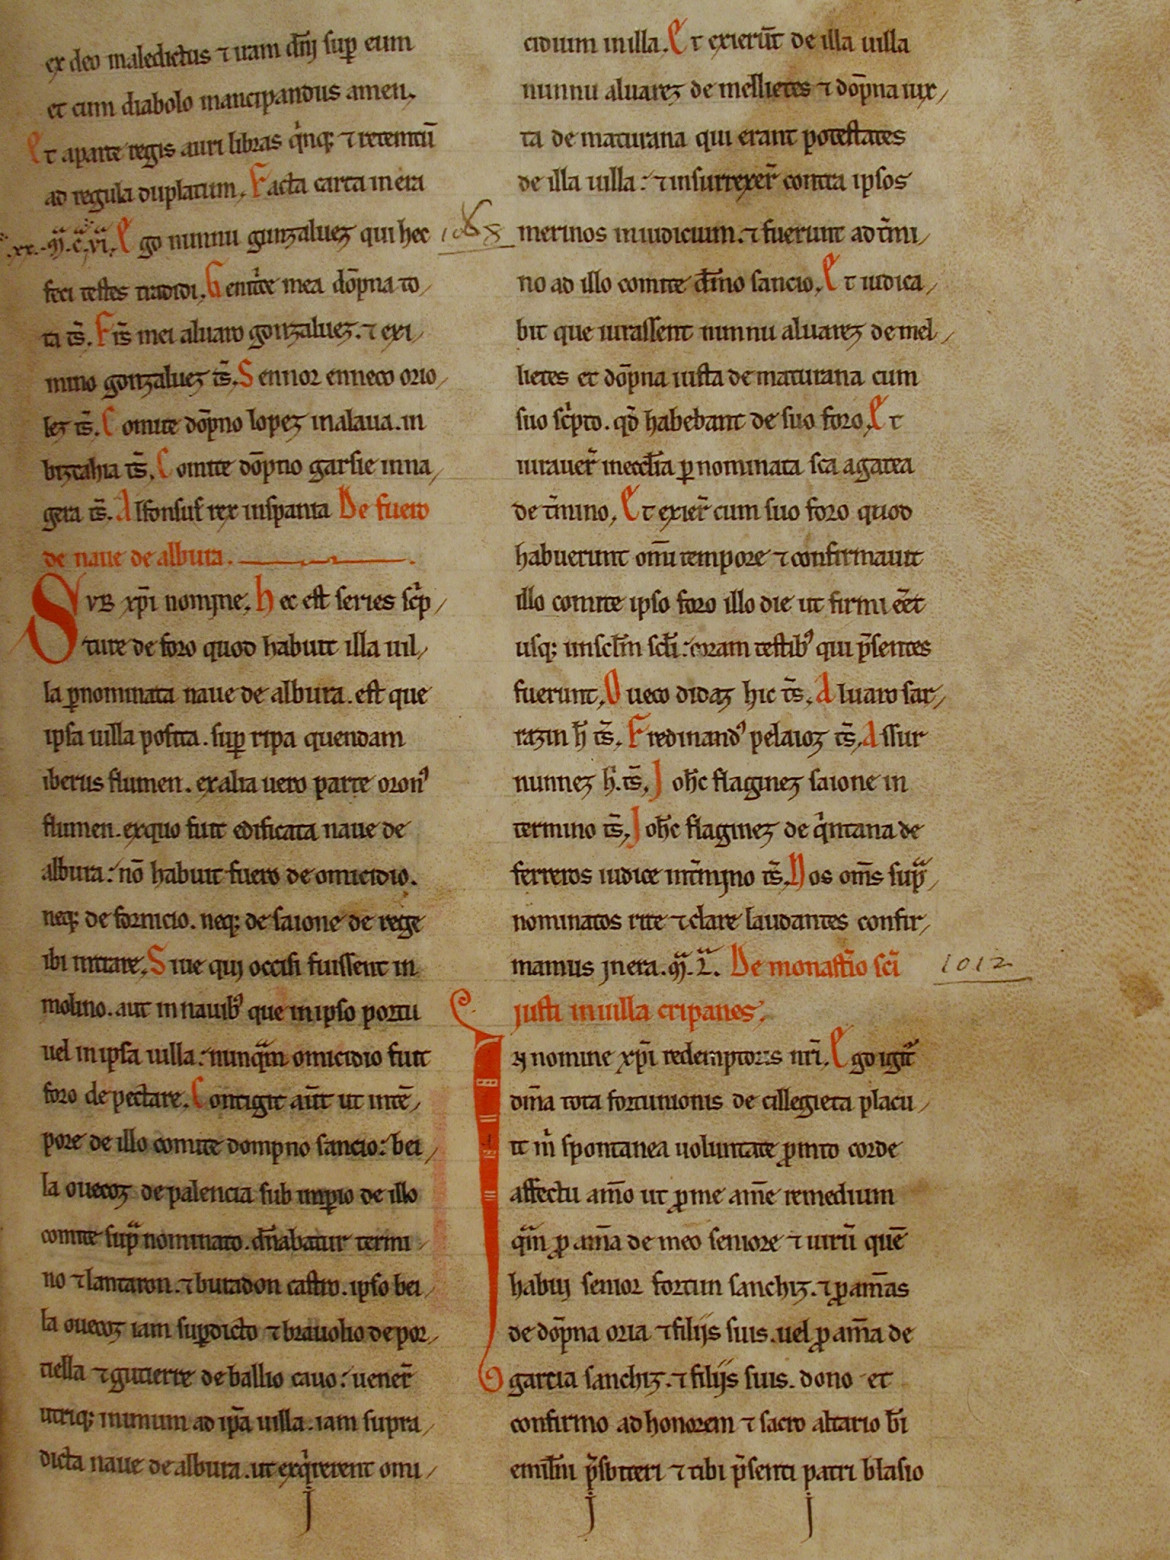 ex deo maledictus ⁊ uam dn̄j sup̱ eum
et cum diabolo mancipandus amen.
Et aparte regis auri libras q̇nq; ⁊ retemtū
ad regula duplatum. Facta carta in era
Ego nunnu gunzaluez qui hec
1068
feci testes tradidi. Genit̄ce mea dōpna to/
ta t̄s. Fis̄ mei aluaro gonzaluez. ⁊ exi/
mino gonzaluez t̄s. Sennor enneco orio/
lez t̄s. Comite dōpno lopez inalaua. in
bizcahia t̄s. Comite dōpno garsie inna/
gera t̄s. Alfonsus̄ rex inspania De fuero
de naue de albura.
Svb xp̄i nomine. Hec est series sc̄p/
ture de foro quod habuit illa uil/
la p̱nominata naue de albura. est que
ipsa uilla posita. sup̱ ripa quendam
iberus flumen. exalia uero parte oronꝰ
flumen. exquo fuit edificata naue de
albura: nō habuit fuero de omicidio.
neq; de fornicio. neq; de saione de rege
ibi intrare. Siue qui occisi fuissent in
molino. aut innauibꝰ que inipso portu
uel inipsa uilla: nunq̄m omicidio fuit
foro de pectare. Contigit aūt ut intē/
pore de illo comite dompno sancio: bei/
la ouecoz de palencia sub imp̱io de illo
comite sup̄ nominato. dn̄abatur termi/
no ⁊ lantaron. ⁊ buradon castro. ipso bei/
la ouecoz iam sup̱dicto ⁊ brauolio de por/
tiella ⁊ gutierre de ballio cauo: uener̄
utriq; inunum ad ip̄a uilla. iam supra/
dicta naue de albura. ut exq̇rerent omi/
cidium inilla. Et exierūt de illa uilla
nunnu aluarez de mellietes ⁊ dōpna iux/
ta de maturana qui erant potestates
de illa uilla: ⁊ insurrexer̄ contra ipsos
merinos iniudicium. ⁊ fuerunt ad t̄mi/
no ad illo comite dn̄no sancio. Et iudica/
bit que iurassent nunnu aluarez de mel/
lietes et dōpna iusta de maturana cum
suo sc̄pto. qd̄ habebant de suo foro. Et
iurauer̄ inecclīa p̱ nominata sc̄a agatea
de t̄mino. Et exier̄ cum suo foro quod
habuerunt omī tempore ⁊ confirmauit
illo comite ipso foro illo die ut firmi eēt
usq; insclm̄ scl̄i: coram testibꝰ qui p̄sentes
fuerunt. Oueco didaz hic t̄s. Aluaro sar/
razin h̄ t̄s. Fredinandꝰ pelaioz t̄s. Assur
nunnez h̄. t̄s. Joh̄c flaginez saione in
termino t̄s. Joh̄c flaginez de q̇ntana de
ferreros iudice int̄mino t̄s. Nos om̄s sup̄/
nominatos rite ⁊ clare laudantes confir/
mamus jnera. De monastio sc̄i
1012
justi inuilla cripanes.
In nomine xp̄i redemptoris nr̄i. Ego igit̄
dn̄a tota fortunionis de cillegieta placu/
it m̄ spontanea uoluntate p̱mto corde
affectu amō ut p̱ me amē remedium
q̄m p̱ am̄a de meo seniore ⁊ uirū quē
habuj senior fortun sanchiz. ⁊ p̱ am̄as
de dōpna oria ⁊ filijs suis. uel p̱ am̄a de
garcia sanchiz. ⁊ filijs suis. dono et
confirmo ad honorem ⁊ sacro altario b̄i
emilīni p̄sbiteri ⁊ tibi p̄senti patri blasio